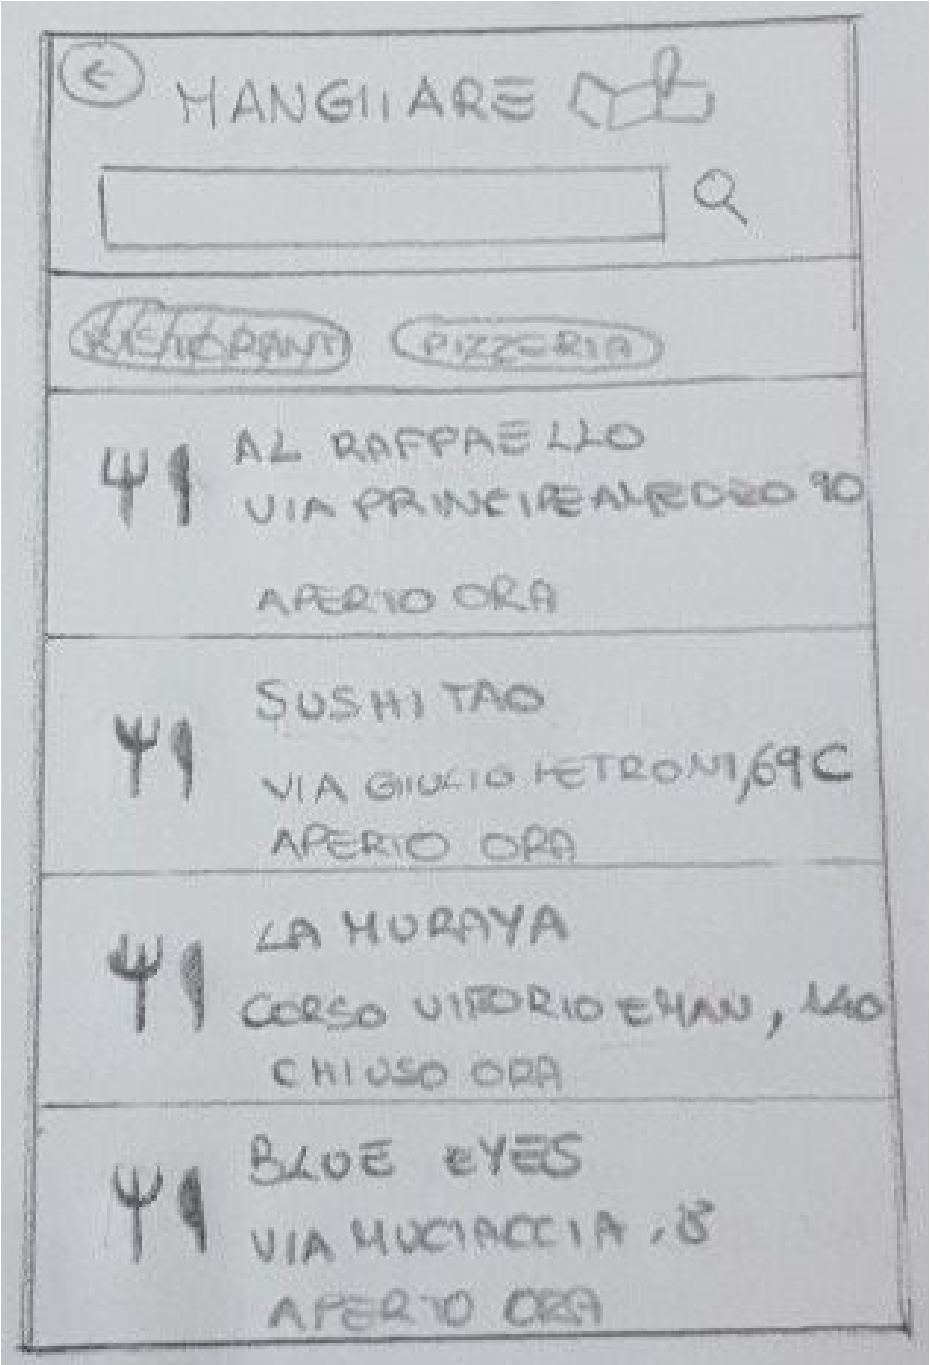 MANGIARE
RISTORANTI PIZZERIA
AL RAFFAELLO
VIA PRINCIPE AMEDEO 90
APERTO ORA
SUSHI TAO
VIA GIULIO PETRONI, 69 C
APERTO ORA
LA MURAYA
CORSO VITTORIO EMAN, 140
CHIUSO ORA
BLUE EYES
VIA MUCIACCIA,
APERTO ORA